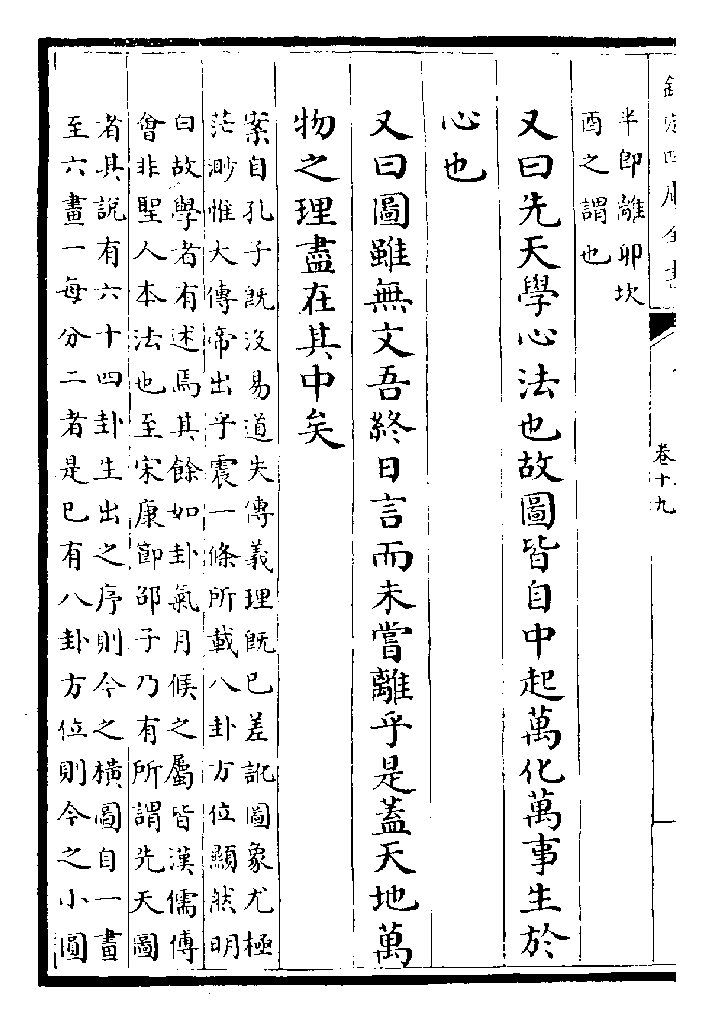 欽定四庫全書
卷十九
半即離卯坎
酉之謂也
又曰先天學心法也故圖皆自中起萬化萬事生於
心也
又曰圖雖無文吾終日言而未嘗離乎是蓋天地萬
物之理盡在其中矣
案自孔子既沒易道失傳義理既已差訛圖象尤極
茫渺惟大傳帝出乎震一條所載八卦方位顯然明
白故學者有述焉其餘如卦氣月候之屬皆漢儒傅
會非聖人本法也至宋康節邵子乃有所謂先天圖
者其說有六十四卦生出之序則今之橫圖自一畫
至六畫一每分二者是已有八卦方位則今之小圓